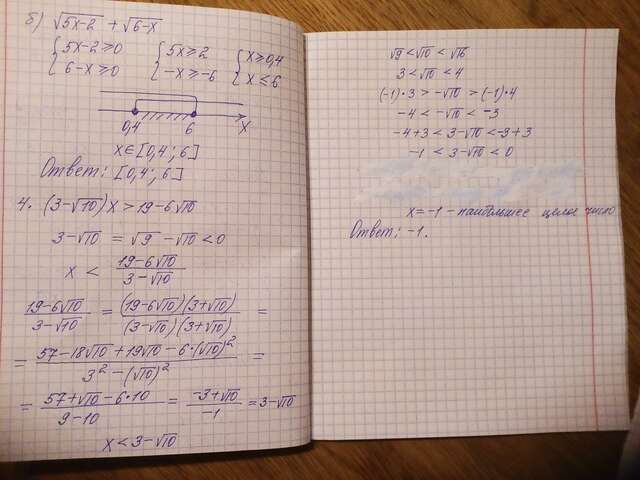 б) √5x-2 + √6-x
{5x-2≥0 {5x≥2 {x≥0,4
{6-x≥0 {-x≥-6 {x≤6
0,4 6 x
x∈[0,4; 6]
Ответ: [0,4; 6]
4. (3-√10)x > 19-6√10
3-√10 = √9 - √10 < 0
x < (19-6√10)/(3-√10)
(19-6√10)/(3-√10) = ((19-6√10)(3+√10))/((3-√10)(3+√10)) =
= (57-18√10+19√10-6·(√10)²)/(3²-(√10)²) =
= (57+√10-6·10)/(9-10) = (-3+√10)/(-1) = 3-√10
x < 3-√10
√9 < √10 < √16
3 < √10 < 4
(-1)·3 > -√10 > (-1)·4
-4 < -√10 < -3
-4+3 < 3-√10 < -3+3
-1 < 3-√10 < 0
x = -1 - наибольшее целое число
Ответ: -1.